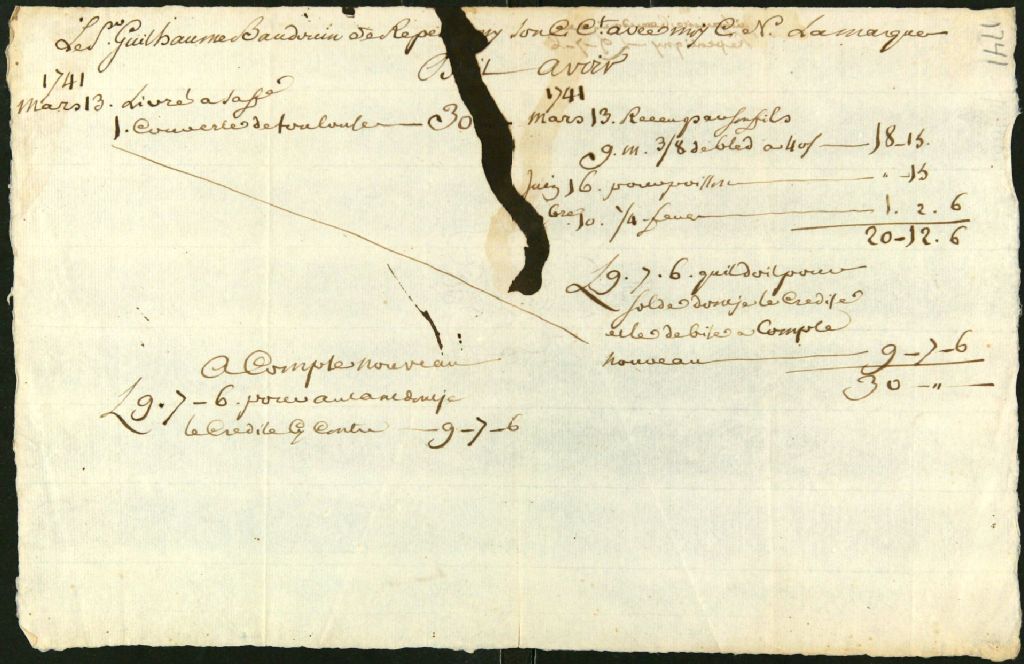 Le Sr. Guilhaume Baudouin de Repentigny son C. Ct. avec moy C. N. Lamarque
Doit
avoir
1741
mars 13. Livré a sa ffe
1. Couverte de toulouse — 30
1741
mars 13. Receu par sa fils
9. m. 3/8 de bled a 40s — 18-15.
Juin 16. pour poisson — " -15
bre 10. 1/4 feves — 1. 2. 6
20-12. 6
L 9. 7. 6. quil doit pour
solde dont je le Credite
et le debite a Compte
nouveau — 9-7-6
30 - "
A Compte nouveau
L 9. 7-6. pour autant dont je
le Credite Cy Contre — 9-7-6
1741